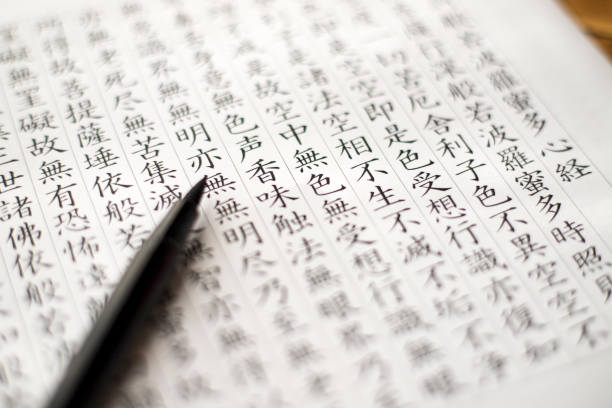 波羅蜜多心経
行深般若波羅蜜多時照
切苦厄舎利子色不異空空不
即是色受想行識亦復如
是諸法空相不生不滅不垢不浄
是故空中無色無受想行識
意無色声香味触法無眼
識界無無明亦無無明尽乃至無
老死尽無苦集滅無智亦無
所得故菩提薩埵依般若
無罣礙故無有恐怖遠
三世諸佛依般若